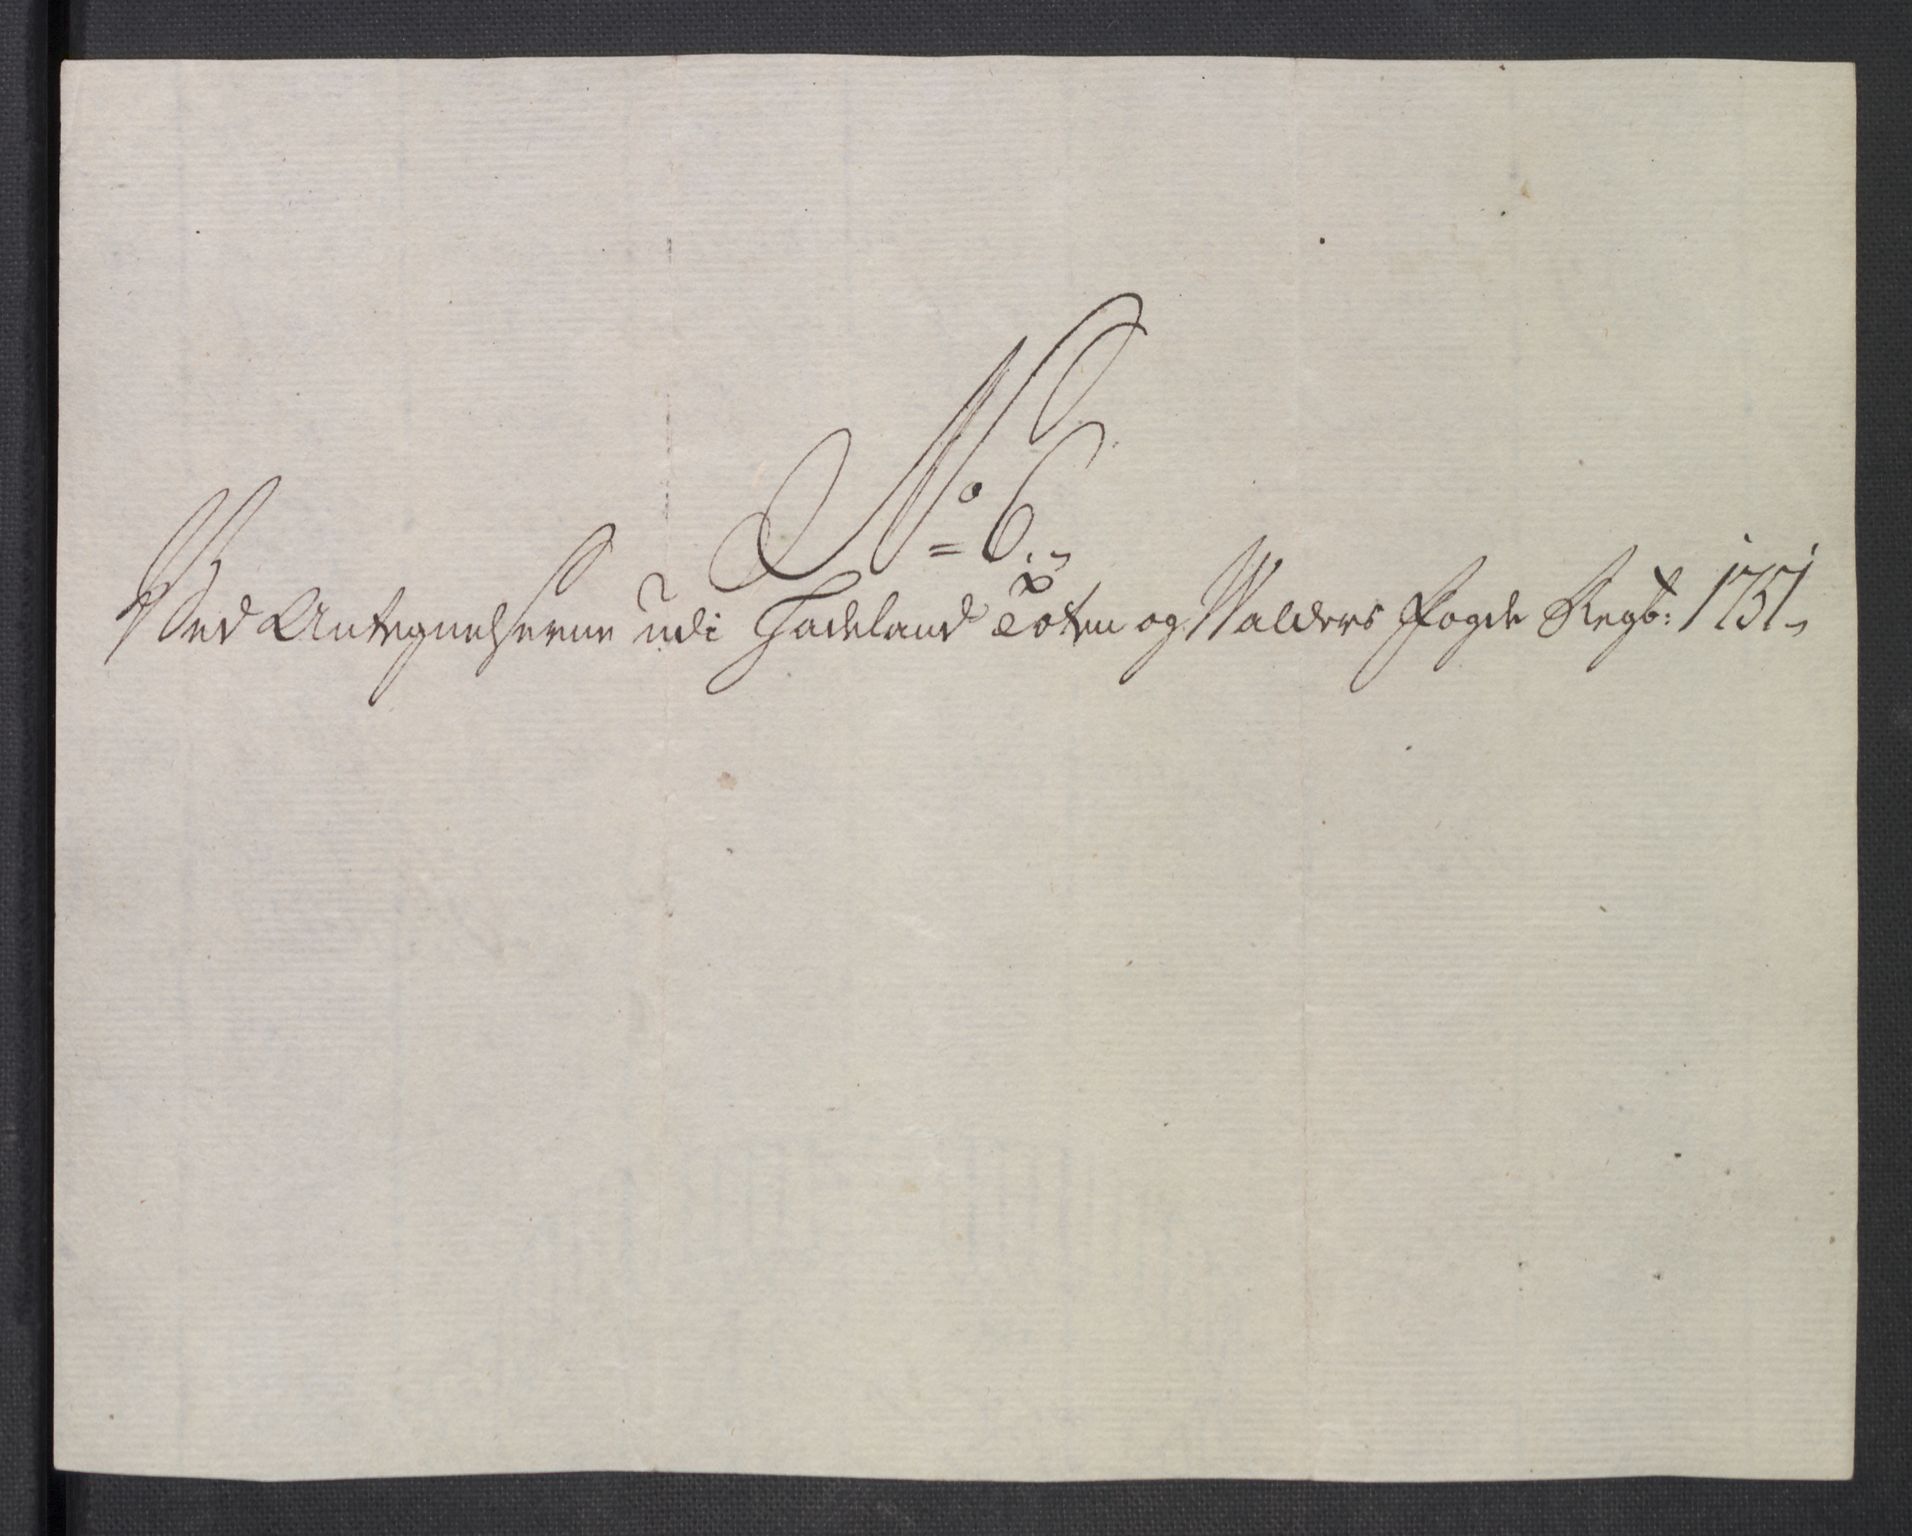 No 6.
Ved Antegnelserne udi Hadeland Toten og Walders Fogde Regb: 1751